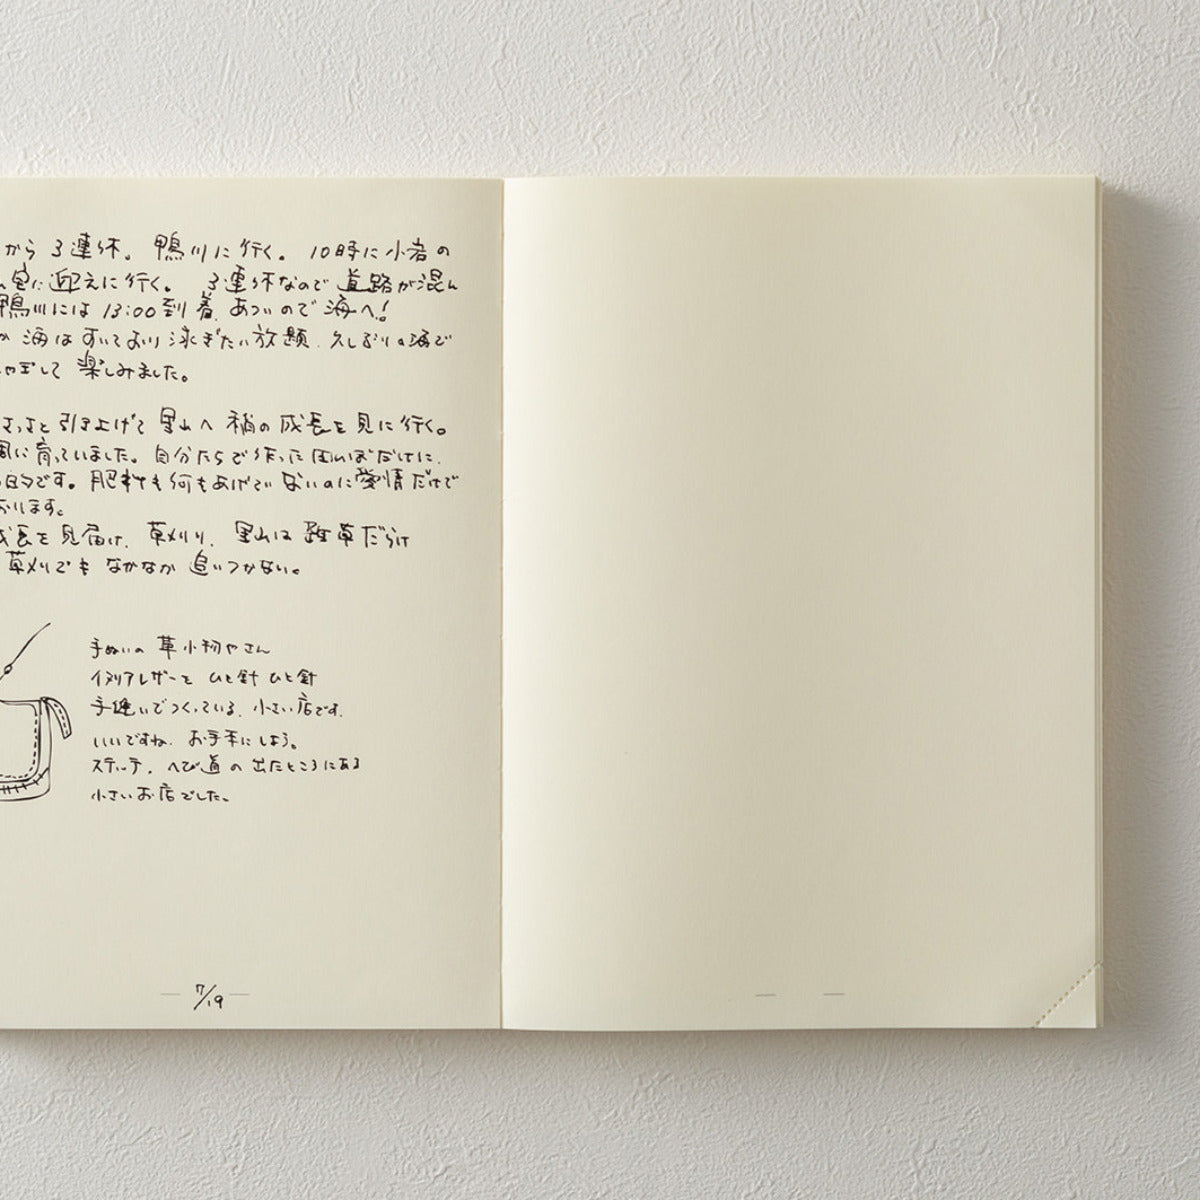 から 3連休。鴨川に行く。10時に小岩の
迎えに行く。3連休なので道路が混ん
鴨川には 13:00到着、あついので海へ!
海はすいており泳ぎたい放題、久しぶりの海で
して楽しみました。
さっさと引き上げて里山へ稲の成長を見に行く。
に育っていました。自分たちで作った田んぼだけに、
的です。肥料も何もあげていないのに愛情だけで
おります。
成長を見届け、草刈り、里山は雑草だらけ
草刈りでもなかなか追いつかない。
手ぬいの革小物やさん
イタリアレザーを ひと針 ひと針
手縫いでつくっている、小さい店です。
いいですね、お手本にしよう。
ステッチ、へび道の出たところにある
小さいお店でした。
7/19